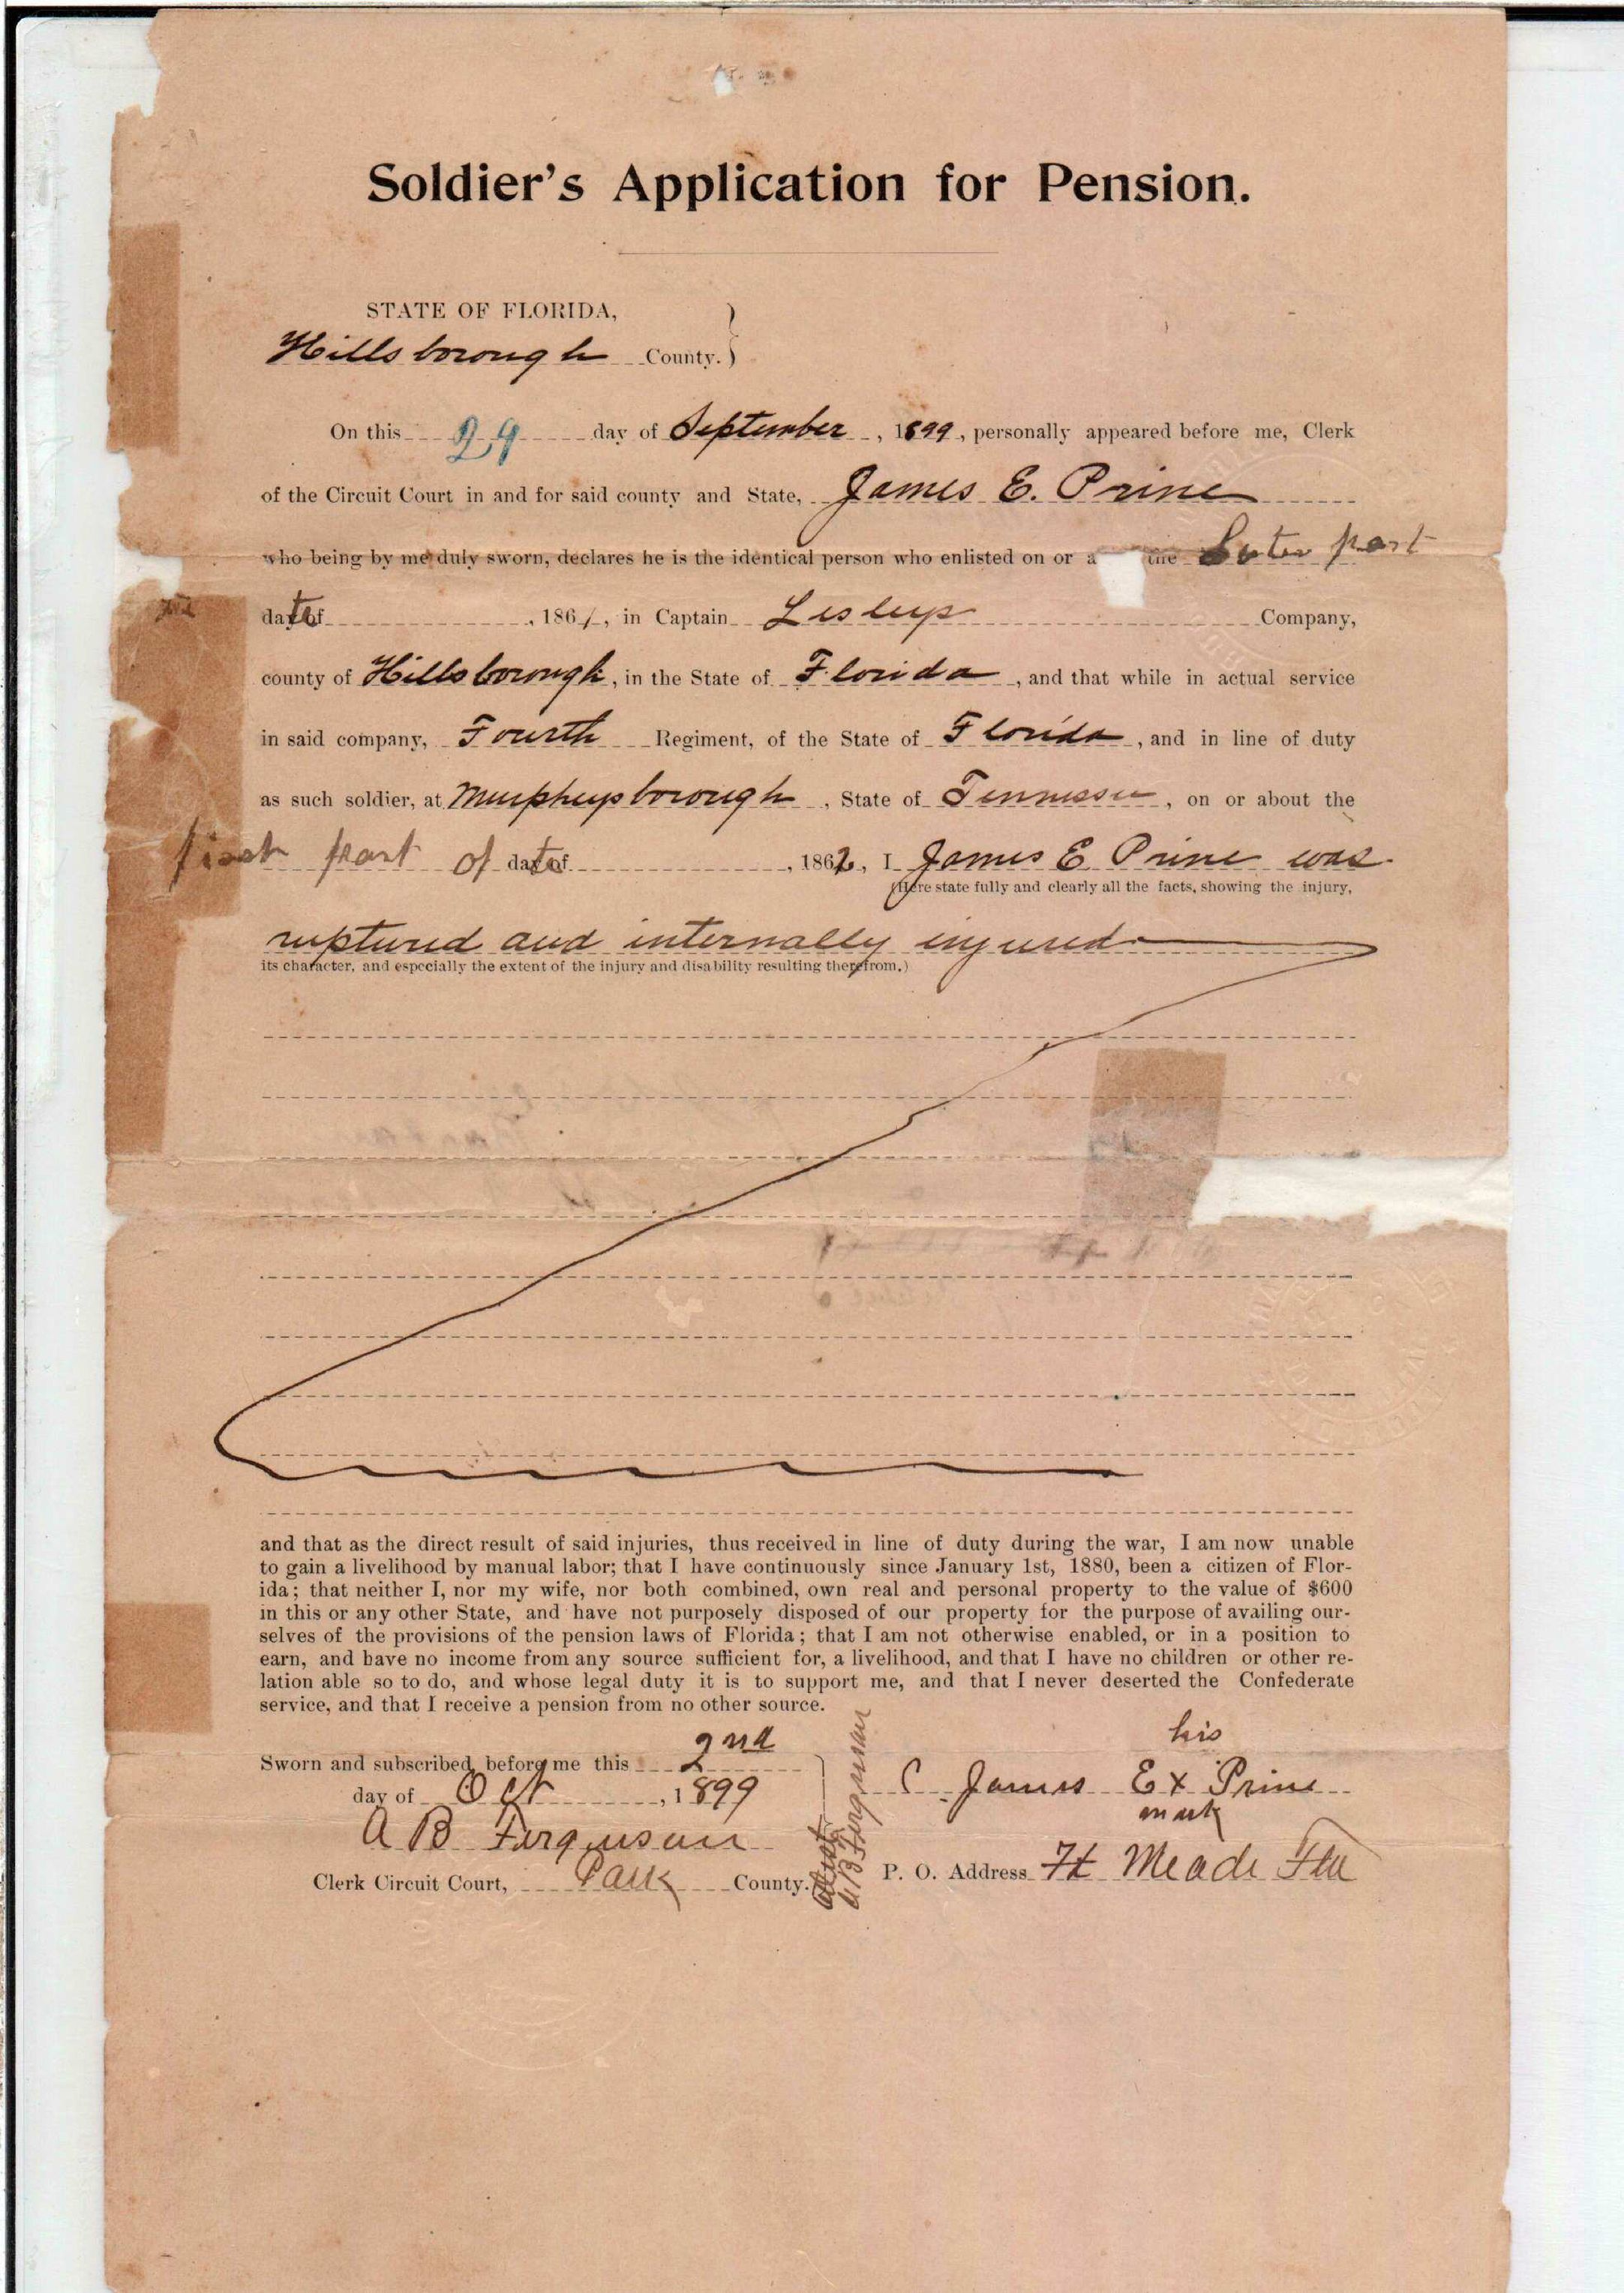 Soldier's Application for Pension.
STATE OF FLORIDA,
Hillsborough County.
On this 29 day of September, 1899, personally appeared before me, Clerk
of the Circuit Court in and for said county and State, James E. Prine
who being by me duly sworn, declares he is the identical person who enlisted on or a the Later part
date of , 1861, in Captain Lesleys Company,
county of Hillsborough, in the State of Florida, and that while in actual service
in said company, Fourth Regiment, of the State of Florida, and in line of duty
as such soldier, at Murpheysborough, State of Tennessee, on or about the
first part of date of , 1862, I James E Prine was
(Here state fully and clearly all the facts, showing the injury,
ruptured and internally injured
its character, and especially the extent of the injury and disability resulting therefrom.)
and that as the direct result of said injuries, thus received in line of duty during the war, I am now unable
to gain a livelihood by manual labor; that I have continuously since January 1st, 1880, been a citizen of Flor-
ida; that neither I, nor my wife, nor both combined, own real and personal property to the value of $600
in this or any other State, and have not purposely disposed of our property for the purpose of availing our-
selves of the provisions of the pension laws of Florida; that I am not otherwise enabled, or in a position to
earn, and have no income from any source sufficient for, a livelihood, and that I have no children or other re-
lation able so to do, and whose legal duty it is to support me, and that I never deserted the Confederate
service, and that I receive a pension from no other source.
his
Sworn and subscribed before me this 2nd
day of Oct, 1899
James E x Prine
mark
A B Ferguson
Clerk Circuit Court, Polk County.
attest
A B Ferguson
P. O. Address Ft Meade Fla